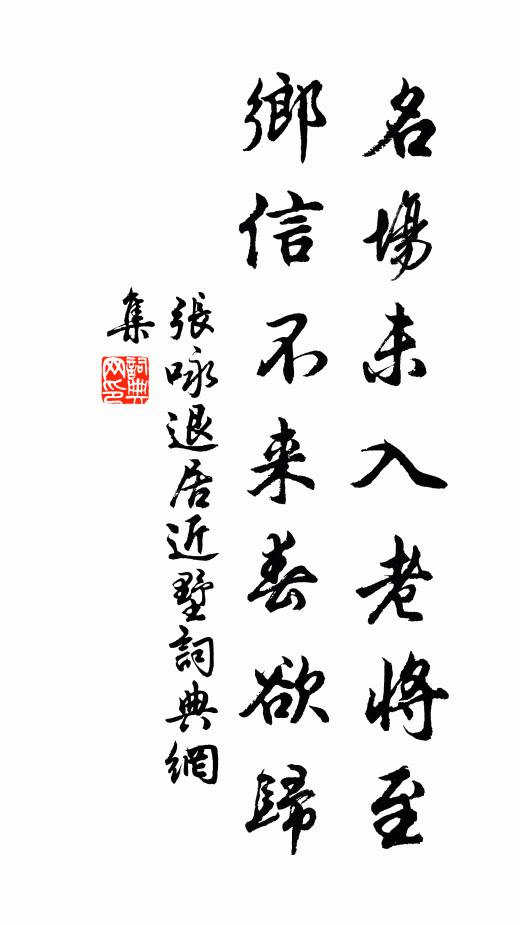 名場未入老將至
鄉信不来春欲歸
張咏退居近墅詞典網
集
詞典
网印